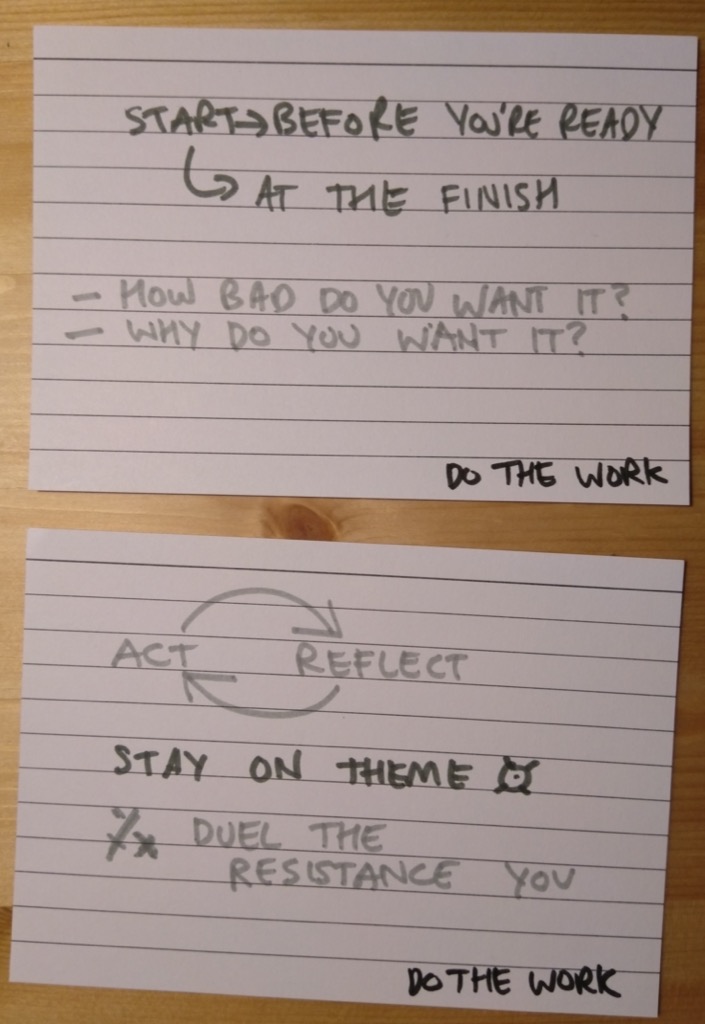 START → BEFORE YOU'RE READY
↳ AT THE FINISH
- HOW BAD DO YOU WANT IT?
- WHY DO YOU WANT IT?
DO THE WORK
ACT REFLECT
STAY ON THEME
DUEL THE
RESISTANCE YOU
DO THE WORK